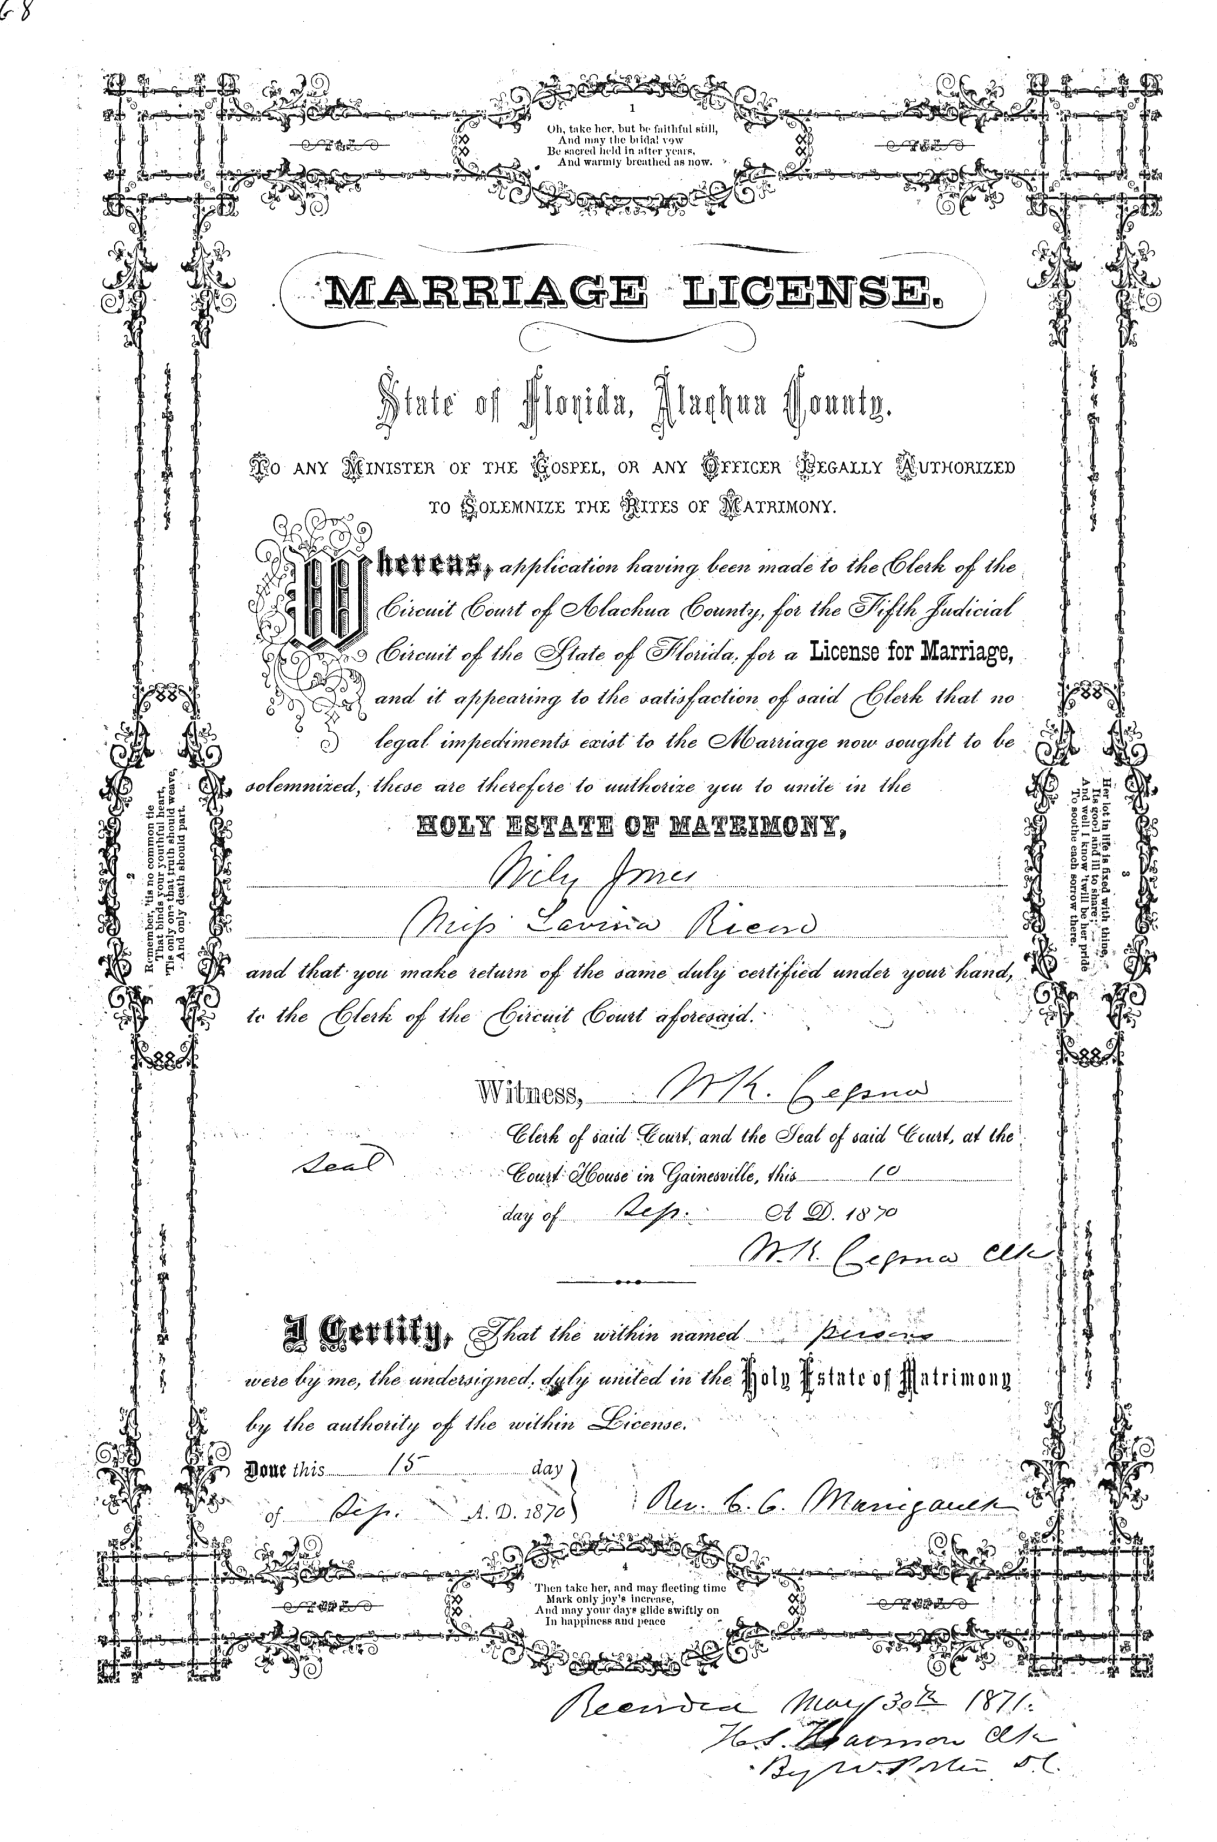 68
1
Oh, take her, but be faithful still,
And may the bridal vow
Be sacred held in after years,
And warmly breathed as now.
MARRIAGE LICENSE.
State of Florida, Alachua County.
TO ANY MINISTER OF THE GOSPEL, OR ANY OFFICER LEGALLY AUTHORIZED
TO SOLEMNIZE THE RITES OF MATRIMONY.
Whereas, application having been made to the Clerk of the
Circuit Court of Alachua County, for the Fifth Judicial
Circuit of the State of Florida, for a License for Marriage,
and it appearing to the satisfaction of said Clerk that no
legal impediments exist to the Marriage now sought to be
solemnized, these are therefore to authorize you to unite in the
HOLY ESTATE OF MATRIMONY,
Wily Jones
Miss Lavinia
and that you make return of the same duly certified under your hand,
to the Clerk of the Circuit Court aforesaid.
Witness, W.K. Cessna
Clerk of said Court, and the Seal of said Court, at the
Seal
Court House in Gainesville, this 10
day of Sep. A. D. 1870
W.K. Cessna Clk
I Certify, That the within named persons
were by me, the undersigned, duly united in the Holy Estate of Matrimony
by the authority of the within License.
Done this 15 day
of Sep. A. D. 1870
Rev. C. C. Manigault
2
Remember, 'tis no common tie
That binds your youthful heart,
'Tis only one that truth should weave,
And only death should part.
3
Her lot in life is fixed with thine,
Its good and ill to share,
And well I know 'twill be her pride
To soothe each sorrow there.
4
Then take her, and may fleeting time
Mark only joy's increase,
And may your days glide swiftly on
In happiness and peace
Recorded May 30th 1871.
H.S. Harmon Clk
By W. Porter D.C.